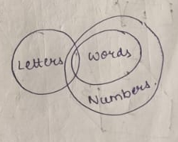 Letters
Words
Numbers.